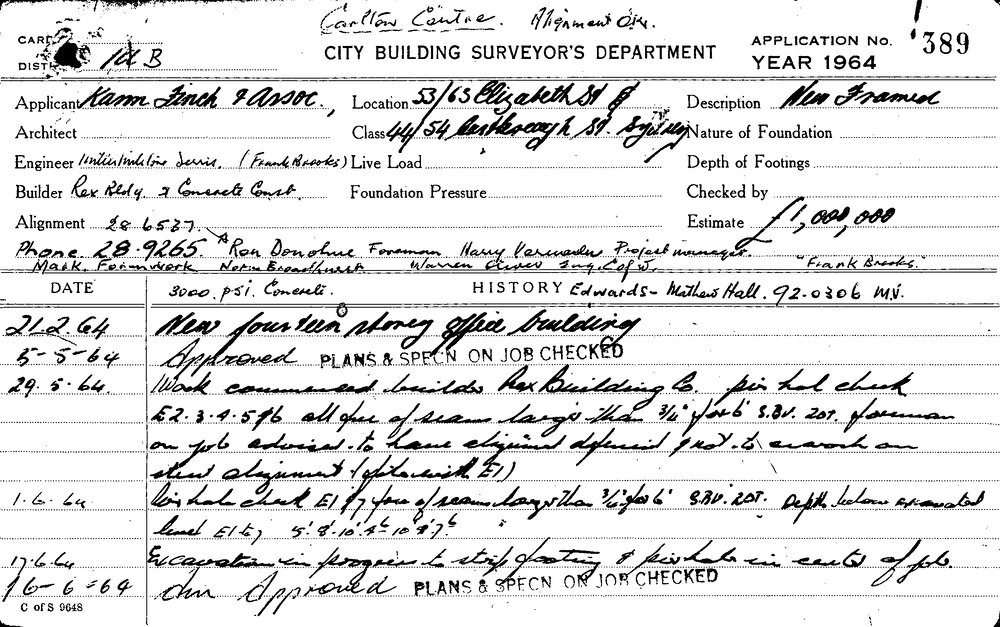 Carlton Centre. Alignment Ok.
CARD
DIST. 1d B
CITY BUILDING SURVEYOR'S DEPARTMENT
APPLICATION No. 389
YEAR 1964
Applicant Kann Finch & Assoc, Location 53/63 Elizabeth St & Description New Framed
Architect Class 44/54 Castlereagh St. Sydney Nature of Foundation
Engineer (Frank Brooks) Live Load Depth of Footings
Builder Rex Bldg. & Concrete Const Foundation Pressure Checked by
Alignment 28 6537. Estimate £1,000,000
Phone 28.9265. Ron Donohue Foreman Harry Project manager.
Mark. Formwork Norm Broadhurst Warren Oliver Eng. C of S. "Frank Brooks."
DATE 3000. p.s.i. Concrete. HISTORY Edwards - Mathews Hall. 92-0306 M.V.
21.2.64 New fourteen storey office building
5-5-64 Approved PLANS & SPEC'N ON JOB CHECKED
29.5.64. Work commenced builder Rex Building Co. pin hol check
E2.3.4.5 & 6 all free of seams larger than 3/16" for 6' S.B.V. 20T. foreman
on job advised to have alignment defined & not to work on
street alignment
1.6.64 Pin hole check E1 & 7 free of seams larger than for 6' S.B.V. 20T. Depth below excavated
level E1 to 7
17.6.64 Excavation in progress to strip footing & pin hole in centre of job.
16-6-64 Am Approved PLANS & SPEC'N ON JOB CHECKED
C of S 9648